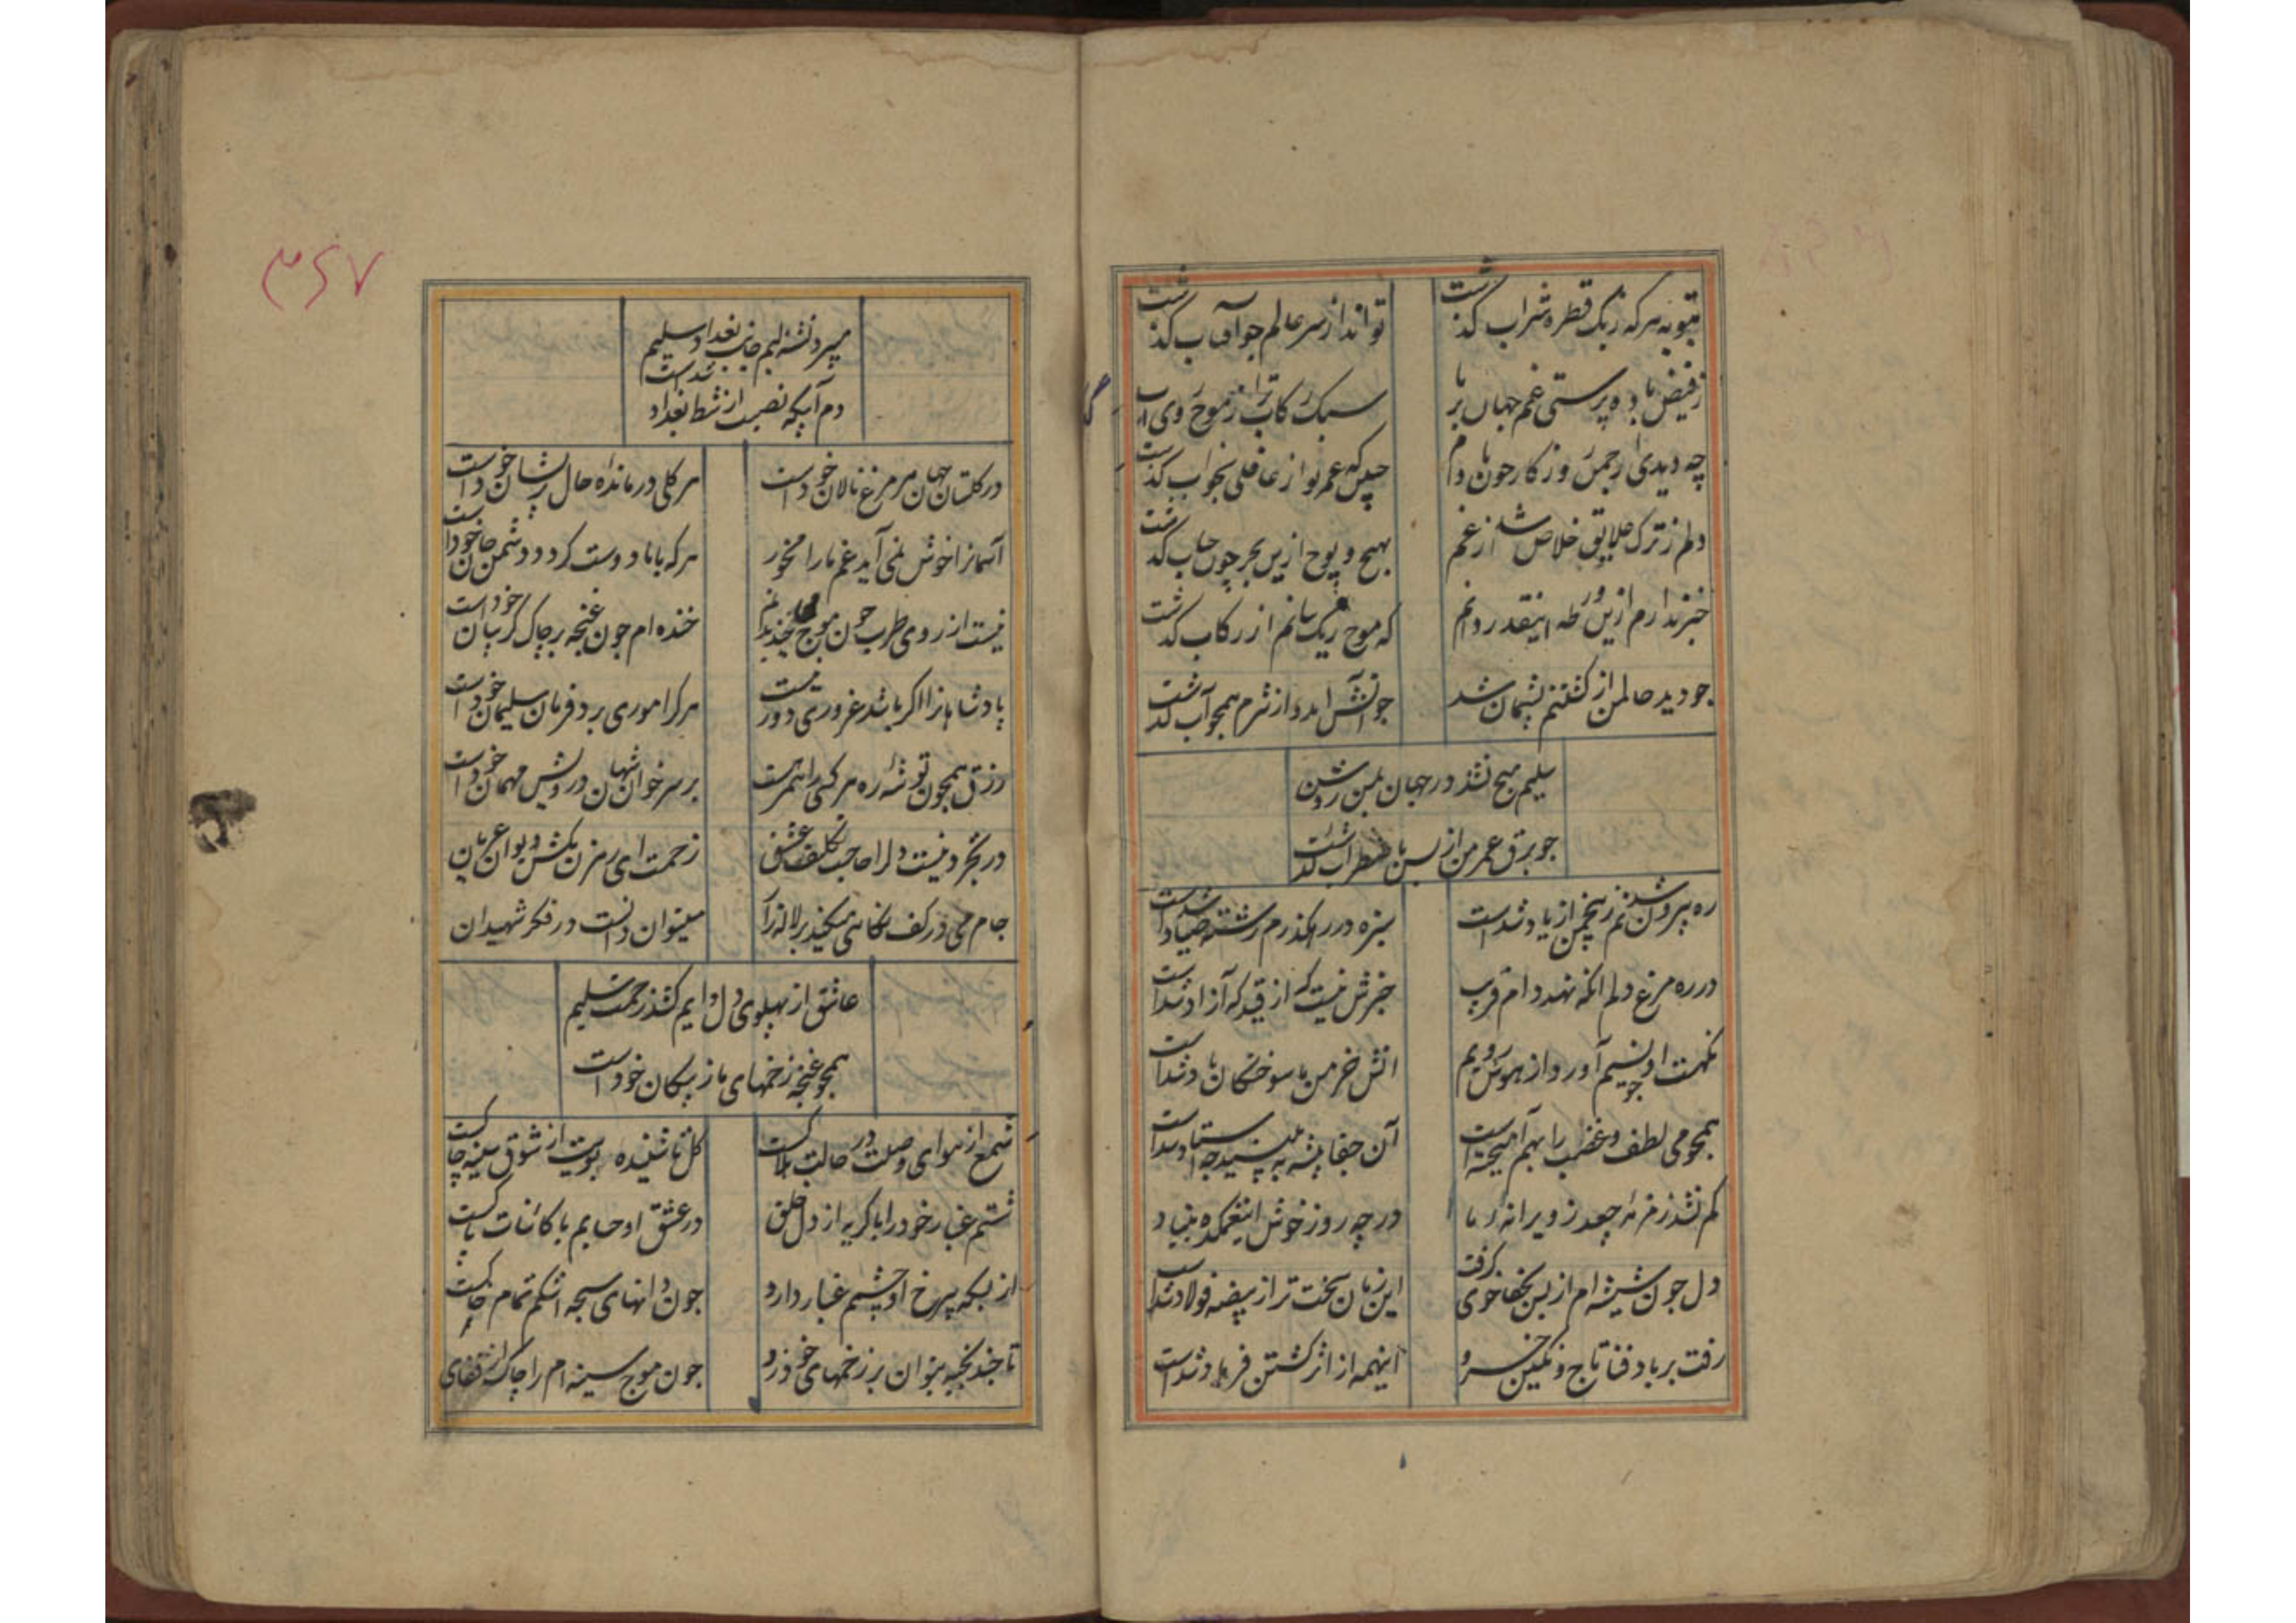 بتوبه هرکه ز یک قطره شراب گذشت
تواند از سر عالم چو آفتاب گذشت
ز فیض باده پرستی غم جهان بر ما
سبک رکاب تر از موج روی آب
چه دیدی از چمن روزگار چون بادام
که عمر تو از غافلی بخواب گذشت
دلم ز ترک علایق خلاص شد از غم
بهیچ و پوچ ازین بحر چون حباب گذشت
خبر ندارم ازین ورطه اینقدر دانم
که موج ریک بیابانم از رکاب گذشت
چو دید حالم از کشتنم پشیمان شد
چو آتش آمد و از شرم همچو آب گذشت
سلیم هیچ نشد در جهان بمن روشن
چو برق عمر من از بس باضطراب گذشت
ره بیرون شدنم زین چمن از یاد شداست
سبزه در رهگذرم رشته صیاد شداست
در ره مرغ دلم انکه نهد دام فریب
خبرش نیست که از قید که آزاد شداست
نکهت او چو نسیم آورد از هوش رویم
اتش خرمن ما سوختگان باد شداست
همچو می لطف و غضب را بهم آمیخته است
آن جفا پیشه ببینید چه استاد شداست
کم نشد زمزمه جغد ز ویرانه ما
در چه روز خوش این غمکده بنیاد
دل چون شیشه ام از بس بجفا خوی گرفت
این زمان سخت تر از بیضه فولاد شداست
رفت بر باد فنا تاج و نکین خسرو
اینهمه از اثر کشتن فرهاد شداست
۳۶۷
میرود تشنه لبم جانب بغداد سلیم
دم آبیکه نصیب از شط بغداد شداست
در گلستان جهان هر مرغ نالان خود است
هر گلی درمانده حال پریشان خود است
آسمانرا خوش نمی آید غم ما را مخور
هر که با ما دوست گردد دشمن جان خود است
نیست از روی طرب چون موج گر خندیده‌ام
خنده ام چون غنچه بر چاک گریبان خود است
پادشاهانرا اگر باشد غروری دور نیست
هر کرا موری برد فرمان سلیمان خود است
رزق همچون توشه ره هر کسی را همره است
بر سر خوان شهان درویش مهمان خود است
در تجرد نیست دل را حاجب تکلیف عشق
زحمت ای رهزن مکش دیوانه عریان
جام می در کف نکاهی میکند بر لاله زار
میتوان دانست در فکر شهیدان
عاشق از پهلوی دل دایم کشد زحمت سلیم
همچو غنچه زخمهای ما ز پیکان خود است
شمع از هوای وصلت در حالت هلاکست
گل تا شنیده بویت از شوق سینه چاکست
شستم غبار خود را با گریه از دل خلق
در عشق او حسابم با کائنات پاکست
از بسکه چرخ او چشمم غبار دارد
چون دانهای سبحه اشکم تمام خاکست
تا چند بخیه بتوان بر زخمهای خود زد
چون موج سینه ام را چاک از قفای